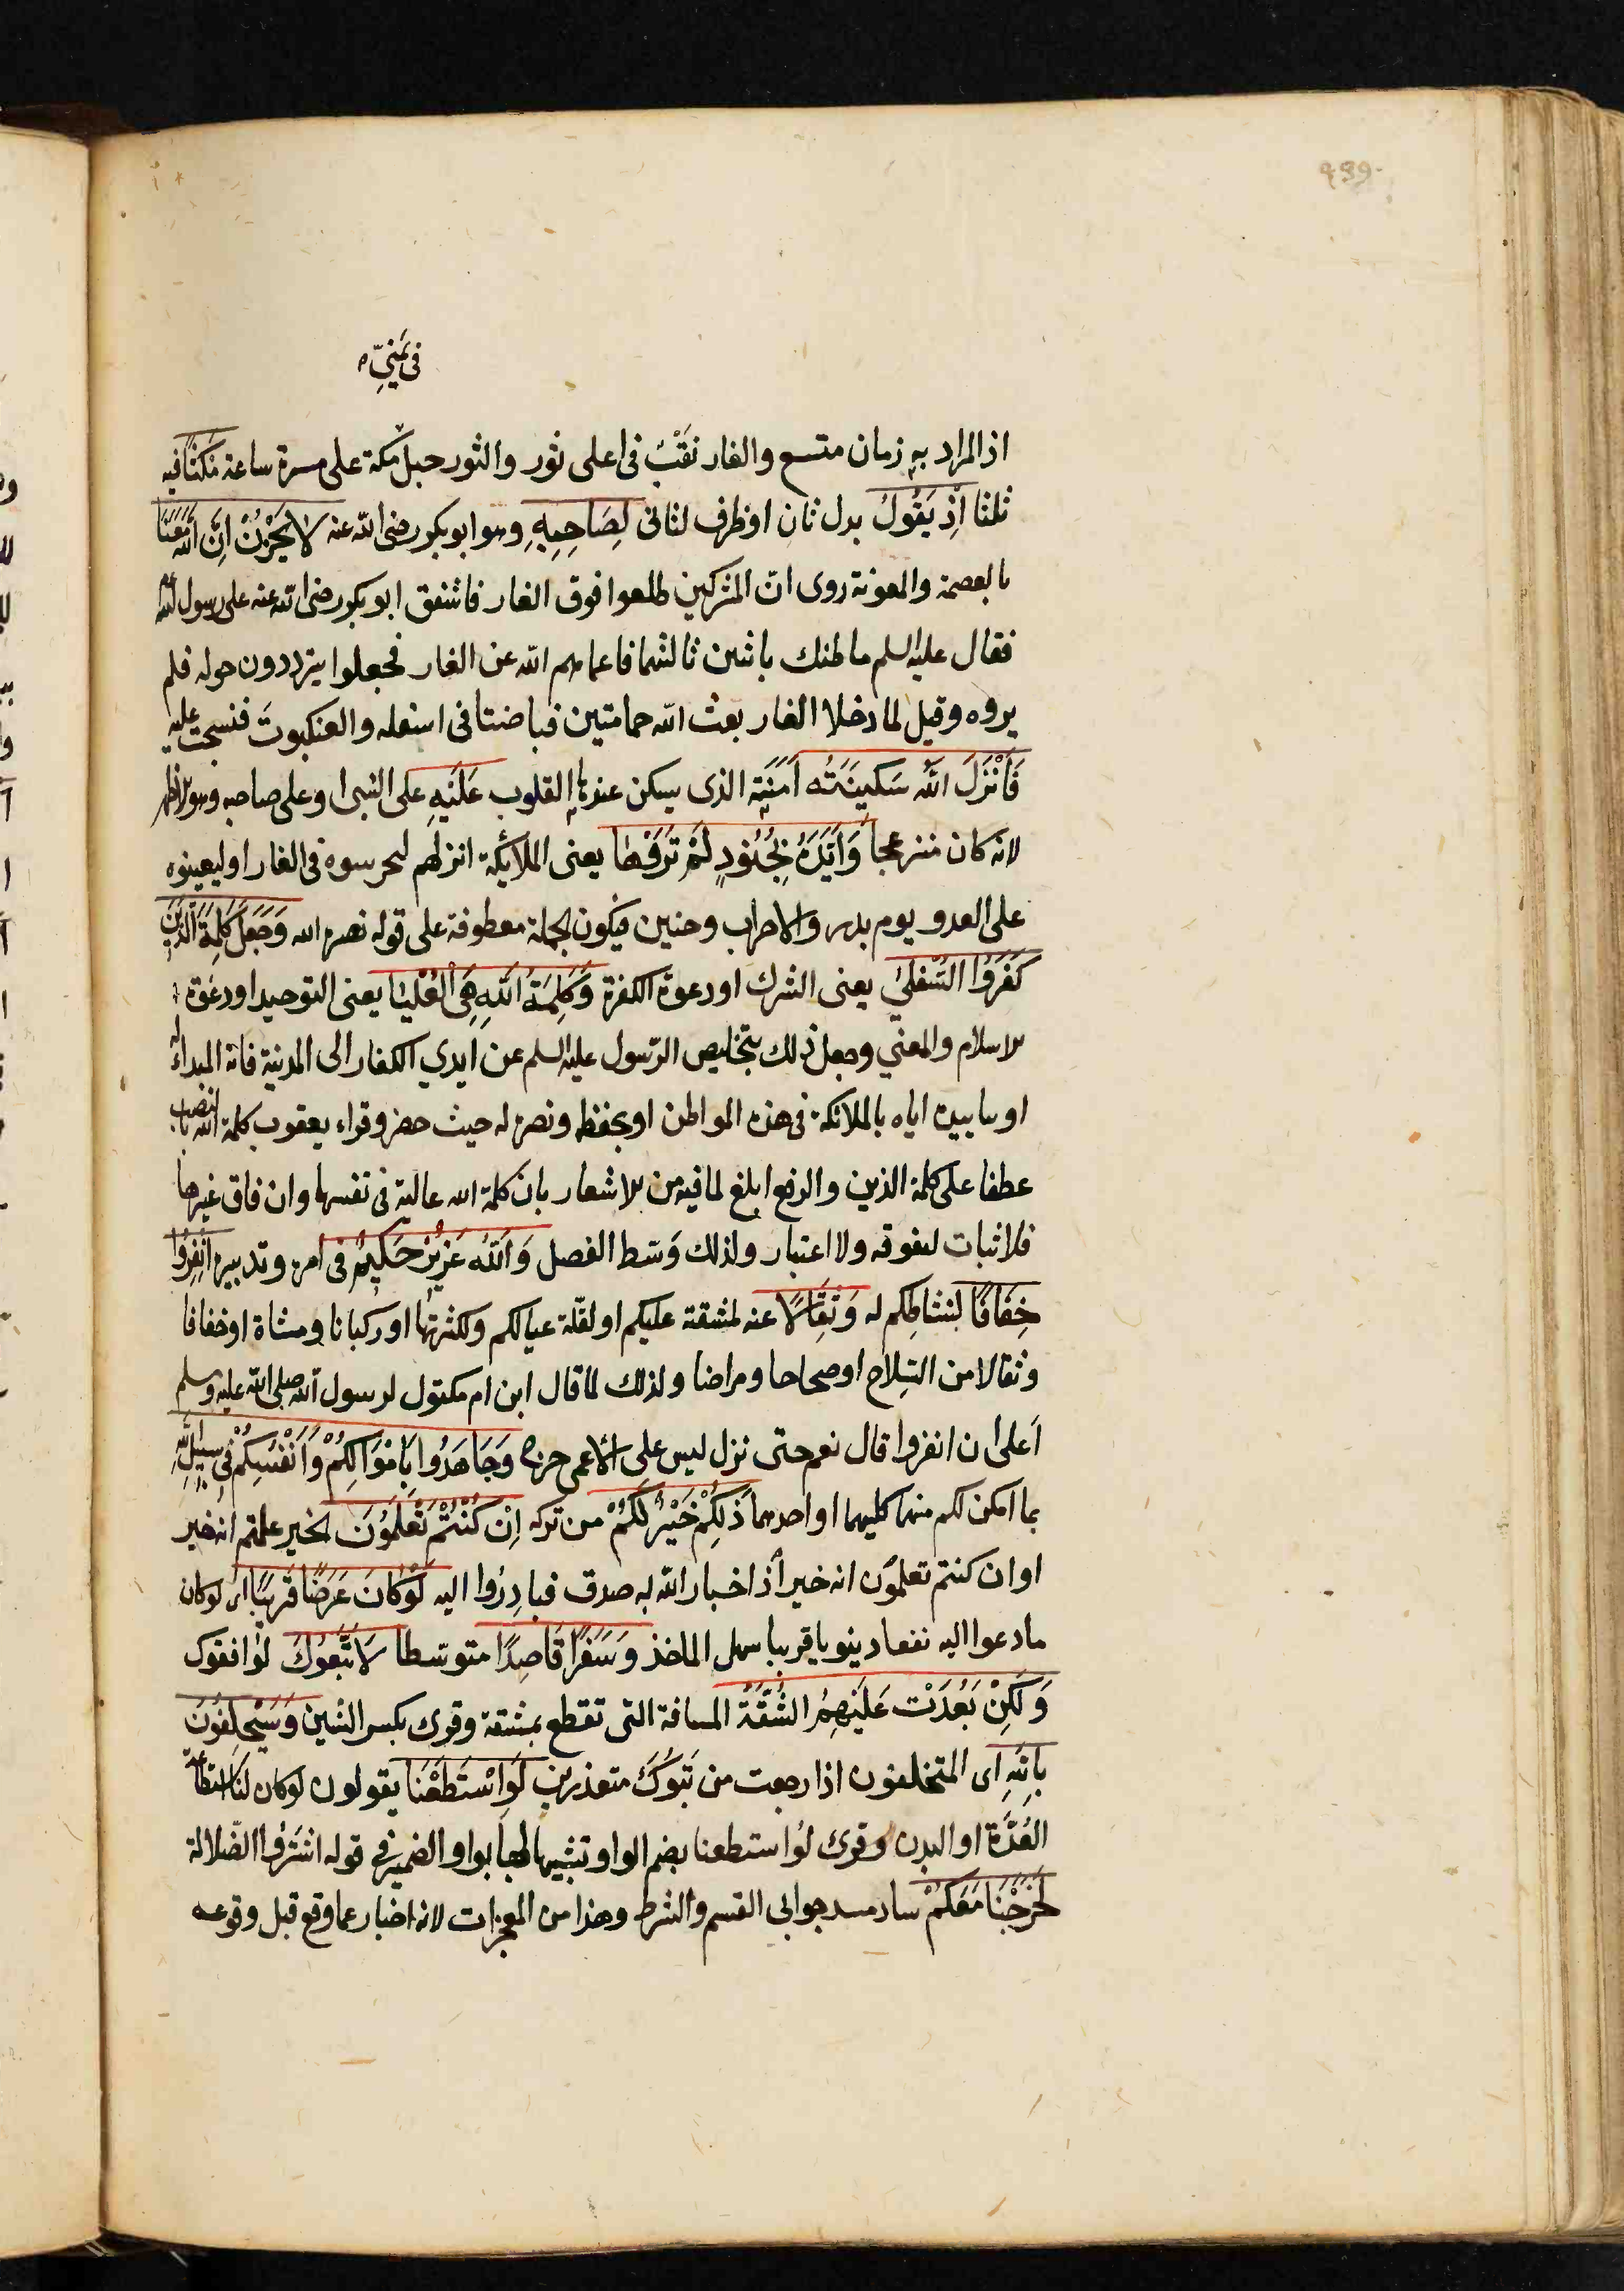 439
فى يمنى
اذ المراد به زمان متسع والغار نقب فى اعلى ثور والثور جبل مكة على مسيرة ساعة مكثا فيه
ثلثا اِذْ يَقُولُ بدل ثان او ظرف لثانى لِصَاحِبِهِ وهو ابو بكر رضى الله عنه لَا تَحْزَنْ اِنَّ اللّٰهَ مَعَنَا
بالعصمة والمعونة روى ان المشركين طلعوا فوق الغار فاشفق ابو بكر رضى الله عنه على رسول الله
فقال عليه السلم ما ظنك باثنين ثالثهما فاعماهم الله عن الغار فجعلوا يترددون حوله فلم
يروه وقيل لما دخلا الغار بعث الله حمامتين فباضتا فى اسفله والعنكبوت فنسجت عليه
فَاَنْزَلَ اللّٰهُ سَكِينَتَهُ اَمَنَته الذى يسكن عندها القلوب عَلَيْهِ على النبى او على صاحبه وهو الاظهر
لانه كان منزعجا وَاَيَّدَهُ بِجُنُودٍ لَمْ تَرَوْهَا يعنى الملائكة انزلهم ليحرسوه فى الغار او ليعينوه
على العدو يوم بدر والاحزاب وحنين فيكون الجملة معطوفة على قوله نصره الله وَجَعَلَ كَلِمَةَ الَّذِينَ
كَفَرُوا السُّفْلىٰ يعنى الشرك او دعوة الكفرة وَكَلِمَةُ اللّٰهِ هِىَ الْعُلْيَا يعنى التوحيد او دعوة
الاسلام والمعنى وجعل ذلك بتخليص الرسول عليه السلم عن ايدي الكفار الى المدينة فانه المبداء له
او بتاييده اياه بالملائكة فى هذه المواطن او بحفظه ونصره له حيث حضر وقراء يعقوب كلمة الله بالنصب
عطفا على كلمة الذين والرفع ابلغ لما فيه من الاشعار بان كلمة الله عالية فى نفسها وان فاق غيرها
فلا ثبات لتفوقه ولا اعتبار ولذلك وسط الفصل وَاللّٰهُ عَزِيزٌ حَكِيمٌ فى امره وتدبيره اِنْفِرُوا
خِفَافًا لنشاطكم له وَثِقَالًا عنه لمشقة عليكم او لقلة عيالكم ولكثرتها او ركبانا ومشاة او خفافا
وثقالا من السلاح او صحاحا ومراضا ولذلك لما قال ابن ام مكتوم لرسول الله صلى الله عليه وسلم
اَعلى ان انفروا قال نعم حتى نزل ليس على الاعمى حرج وَجَاهَدُوا بِاَمْوَالِكُمْ وَاَنْفُسِكُمْ فِى سَبِيلِ اللّٰهِ
بما امكن لكم منهما كليهما او احدهما ذٰلِكُمْ خَيْرٌ لَكُمْ من تركه اِنْ كُنْتُمْ تَعْلَمُونَ الخير علمتم انه خير
او ان كنتم تعلمون انه خير اذ اخبار الله به صدق فبادروا اليه لَوْ كَانَ عَرَضًا قَرِيبًا اى لو كان
ما دعوا اليه نفعا دينويا قريبا سهل الماخذ وَسَفَرًا قَاصِدًا متوسطا لَاتَّبَعُوكَ لوافقوك
وَلٰكِنْ بَعُدَتْ عَلَيْهِمُ الشُّقَّةُ المسافة التى تقطع بمشقة وقرى بكسر الشين وَسَيَحْلِفُونَ
بِاللّٰهِ اى المتخلفون اذا رجعت من تبوك متعذرين لَوِ اسْتَطَعْنَا يقولون لو كان لنا استطاعة
العُدّة او البدن وقرى لوُ استطعنا بضم الواو تشبيها لها بواو الضمير فى قوله اشتروا الضلالة
لَخَرَجْنَا مَعَكُمْ ساد مسد جوابى القسم والشرط وهذا من المعجزات لانه اخبار عما وقع قبل وقوعه